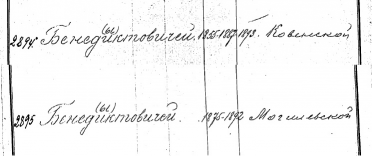 2894 Бенедиктовичей (ы) 1855-1867-1873. Ковенской
2895 Бенедиктовичей (ы) 1875-1892 Могилевской